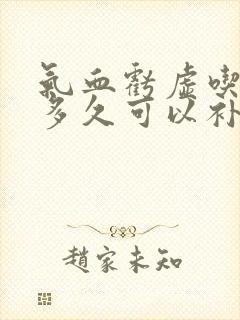 氣血虧虛喫
多久可以补
趙家未知